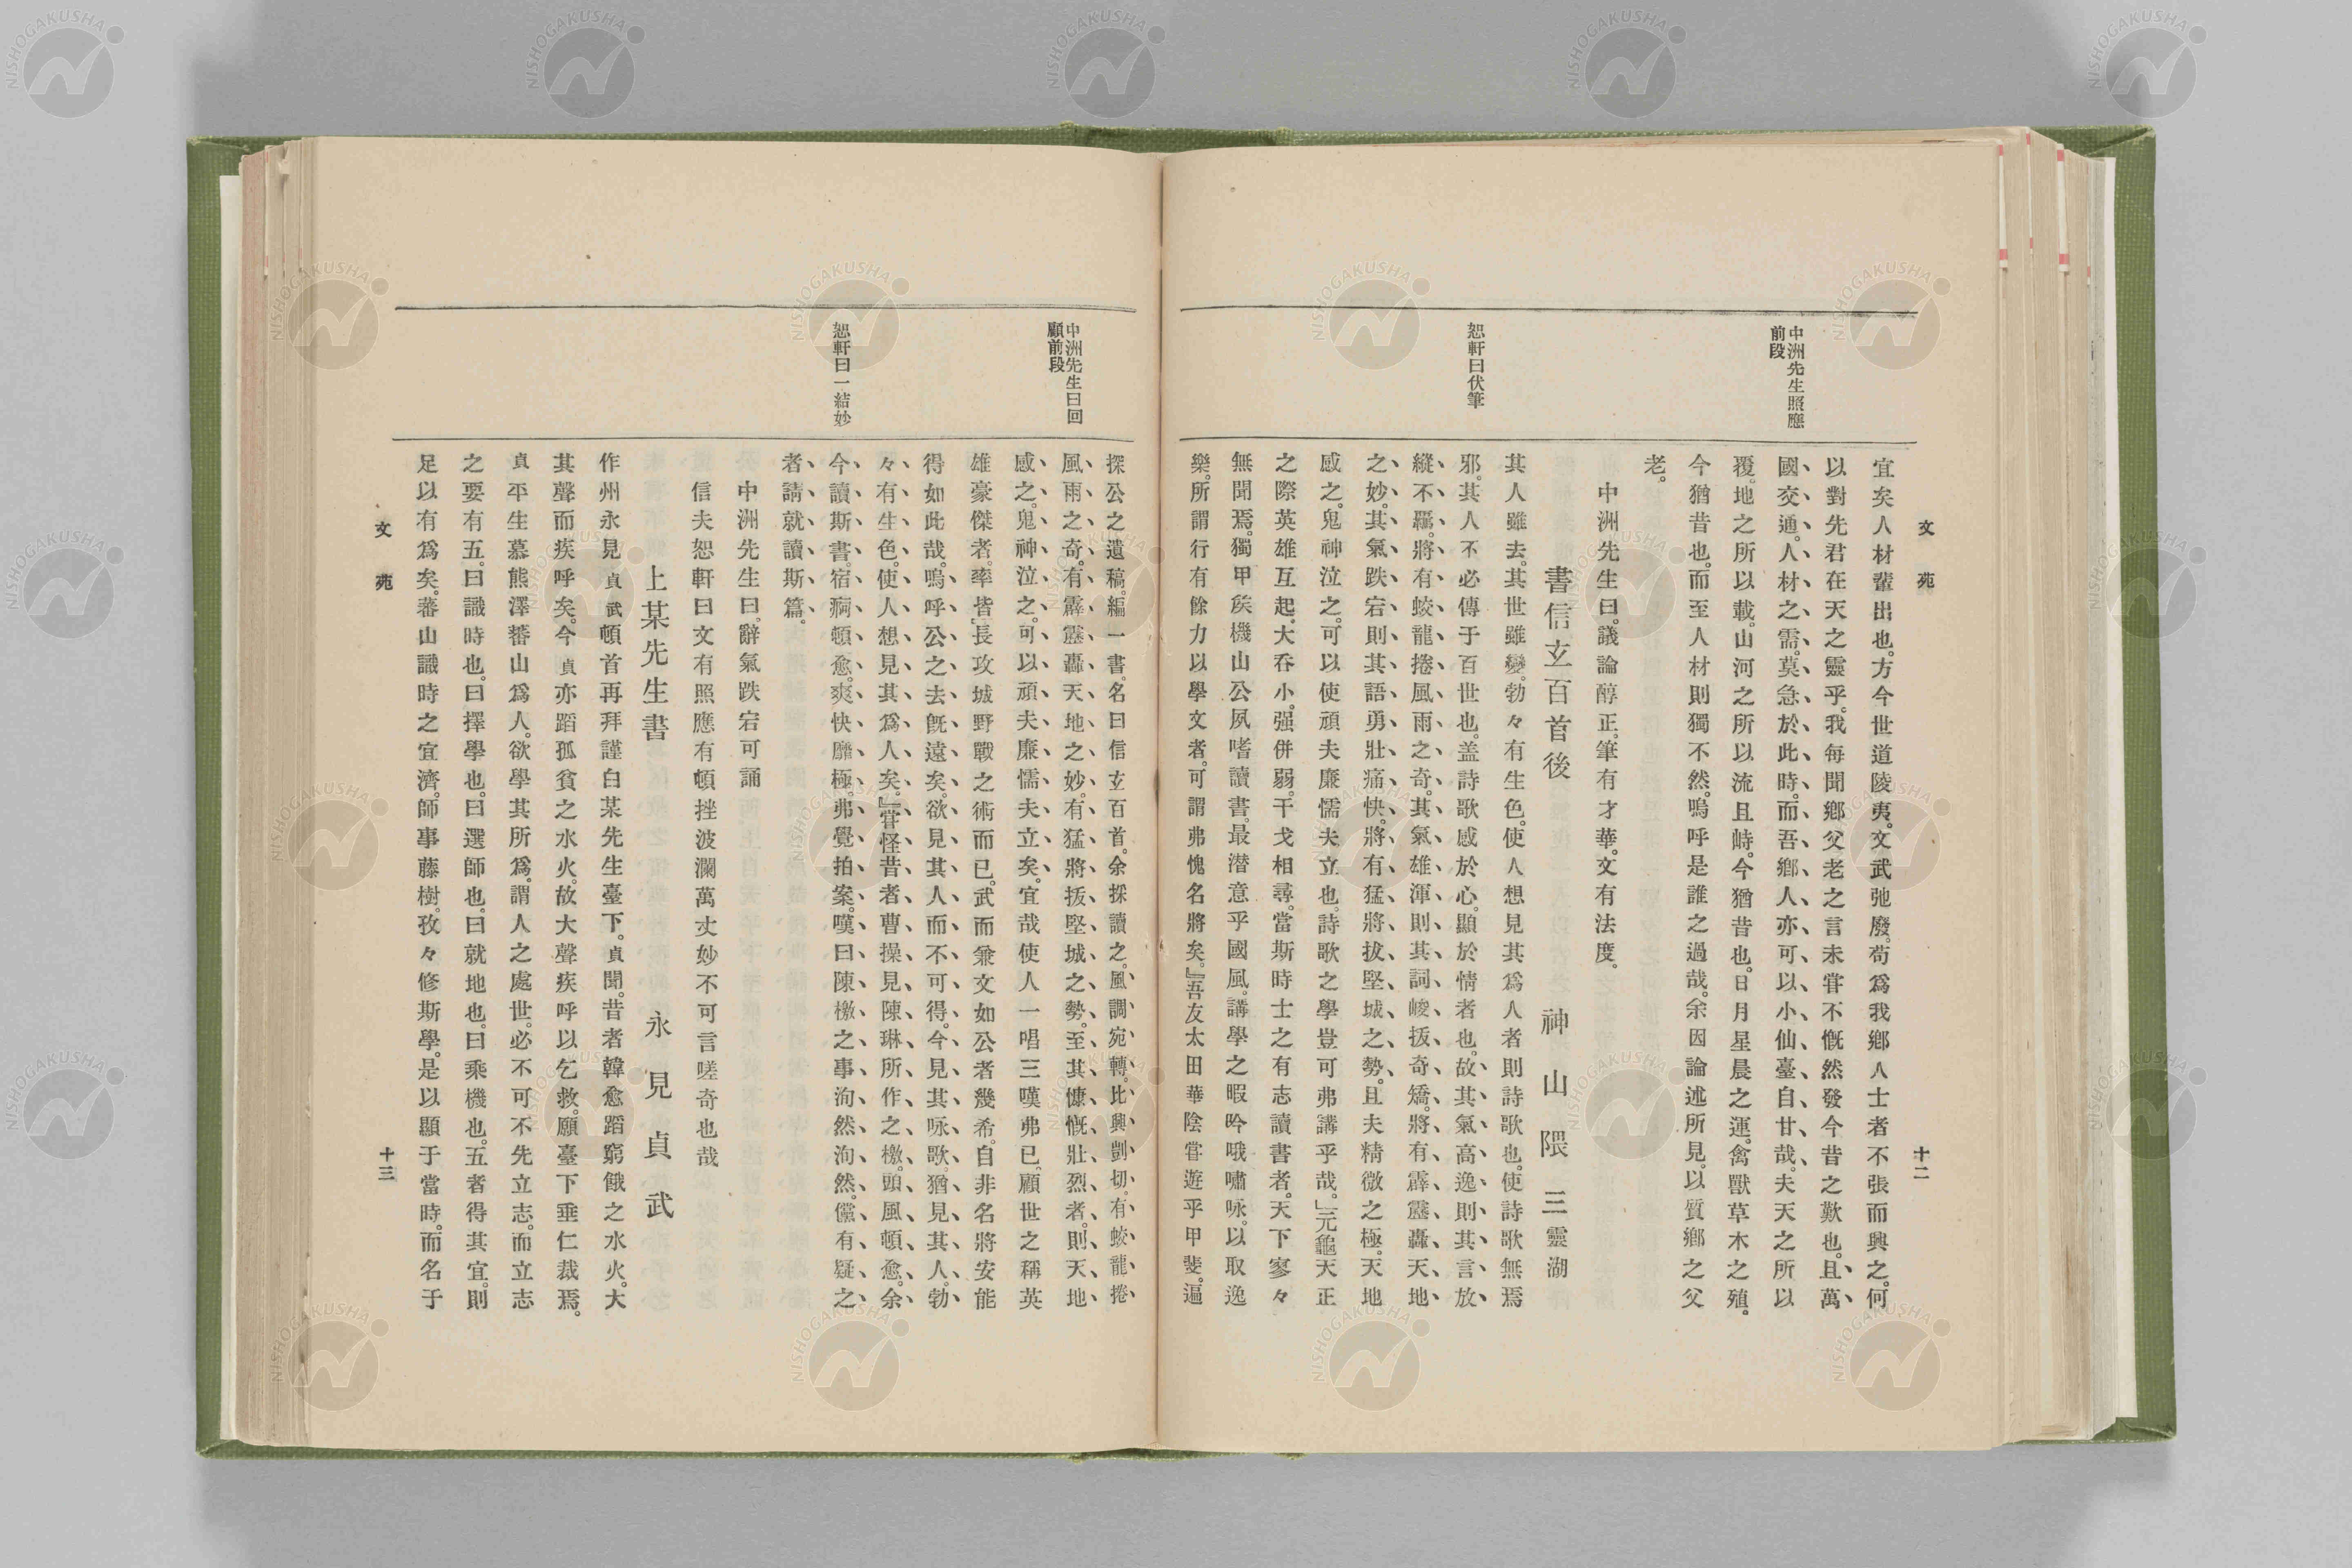 文苑
十二
中洲先生照應
前段
宜矣人材輩出也。方今世道陵夷。文武弛廢。苟爲我鄕人士者不張而興之。何
以對先君在天之靈乎。我每聞鄕父老之言未甞不慨然發今昔之歎也。且、萬、
國、交、通。人、材、之、需。莫、急、於、此、時。而、吾、鄕、人、亦、可、以、小、仙、臺、自、甘、哉。夫天之所以
覆。地之所以載。山河之所以流且峙。今猶昔也。日月星晨之運。禽獸草木之殖。
今猶昔也。而至人材則獨不然。嗚呼是誰之過哉。余因論述所見。以質鄕之父
老。
中洲先生曰。議論醇正。筆有才華。文有法度。
書信玄百首後 神山隈三 靈湖
恕軒曰伏筆
其人雖去。其世雖變。勃々有生色。使人想見其爲人者則詩歌也。使詩歌無焉
邪。其人不必傳于百世也。盖詩歌感於心。顯於情者也。故、其、氣、高、逸、則、其、言、放、
縱、不、羈。將、有、蛟、龍、捲、風、雨、之、奇。其、氣、雄、渾、則、其、詞、峻、拔、奇、矯。將、有、霹、靂、轟、天、地、
之、妙。其、氣、跌、宕、則、其、語、勇、壯、痛、快。將、有、猛、將、拔、堅、城、之、勢。且夫精微之極。天地
感之。鬼神泣之。可以使頑夫廉懦夫立也。詩歌之學豈可弗講乎哉。」元龜天正
之際英雄互起。大呑小。强併弱。干戈相尋。當斯時士之有志讀書者。天下寥々
無聞焉。獨甲矦機山公夙嗜讀書。最潜意乎國風。講學之暇吟哦嘯咏。以取逸
樂。所謂行有餘力以學文者。可謂弗愧名將矣。」吾友太田華陰甞遊乎甲斐。遍
中洲先生曰回
顧前段
探公之遺稿。編一書。名曰信玄百首。余採讀之。風、調、宛、轉。比、興、剴、切。有、蛟、龍、捲、
風、雨、之、奇。有、霹、靂、轟、天、地、之、妙。有、猛、將、拔、堅、城、之、勢。至、其、慷、慨、壯、烈、者、則、天、地、
感、之。鬼、神、泣、之。可、以、頑、夫、廉、懦、夫、立、矣。宜哉使人一唱三嘆弗已。顧世之稱英
雄豪傑者。率皆長攻城野戰之術而已。武而兼文如公者幾希。自非名將安能
得如此哉。嗚、呼、公、之、去、旣、遠、矣。欲、見、其、人、而、不、可、得。今、見、其、咏、歌。猶、見、其、人。勃、
々、有、生、色。使、人、想、見、其、爲、人、矣。」甞、怪、昔、者、曹、操、見、陳、琳、所、作、之、檄。頭、風、頓、愈。余、
恕軒曰一結妙
今、讀、斯、書。宿、痾、頓、愈。爽、快、靡、極。弗、覺、拍、案。嘆、曰、陳、檄、之、事、洵、然、洵、然。儻、有、疑、之、
者、請、就、讀、斯、篇。
中洲先生曰。辭氣跌宕可誦
信夫恕軒曰文有照應有頓挫波瀾萬丈妙不可言嗟奇也哉
上某先生書 永見貞武
作州永見貞武頓首再拜謹白某先生臺下。貞聞。昔者韓愈蹈窮餓之水火。大
其聲而疾呼矣。今貞亦蹈孤貧之水火。故大聲疾呼以乞救。願臺下垂仁裁焉。
貞平生慕熊澤蕃山爲人。欲學其所爲。謂人之處世。必不可不先立志。而立志
之要有五。曰識時也。曰擇學也。曰選師也。曰就地也。曰乘機也。五者得其宜。則
足以有爲矣。蕃山識時之宜濟。師事藤樹。孜々修斯學。是以顯于當時。而名于
文苑
十三
NISHOGAKUSHA